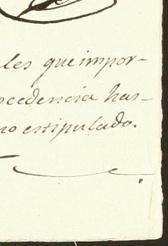 les que impor-
ocedencia has-
no estipulado.